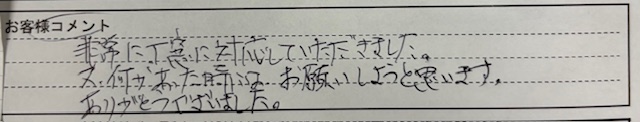 お客様コメント
非常に丁寧に対応していただきました。
又、何かあった時は お願いしようと思います。
ありがとうございました。